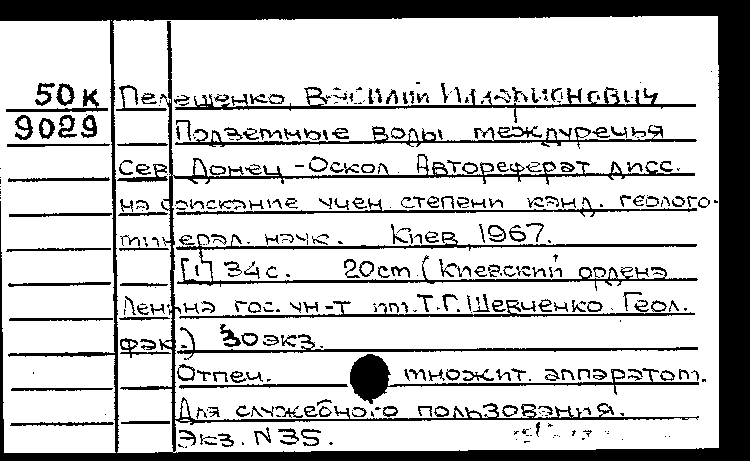 50к Пелещенко, Василий Илларионович
9029 Подземные воды междуречья
Сев Донец-Оскол Автореферат дисс.
на соискание учен степени канд. геолого-
минерал. наук. Киев, 1967.
[1] 34 с. 20 cm. (Киевский ордена
Ленина гос. ун-т им. Т.Г. Шевченко. Геол.
фак.) 30 экз.
Отпеч. множит. аппаратом.
Для служебного пользования.
Экз. N 35.